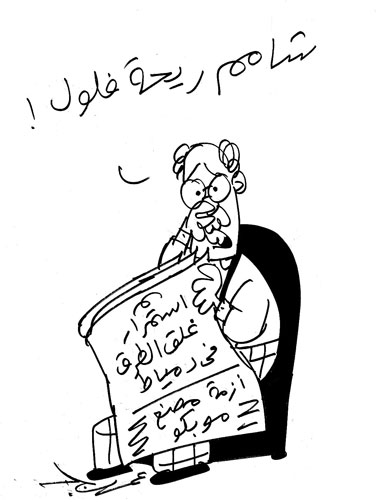 شامم ريحة فلول !
استمرار
غلق الطرق
في دمياط
أزمة مصنع
موبكو